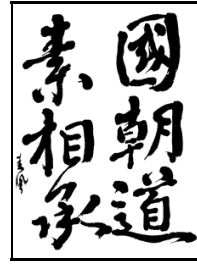 國朝道
素相承